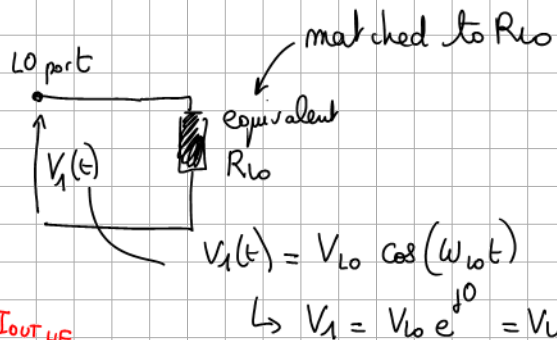 matched to RLO
LO port
equivalent
RLO
V1(t)
V1(t) = VLO cos(ωLOt)
↳ V1 = VLO e^j0 = VL
IOUT,UF